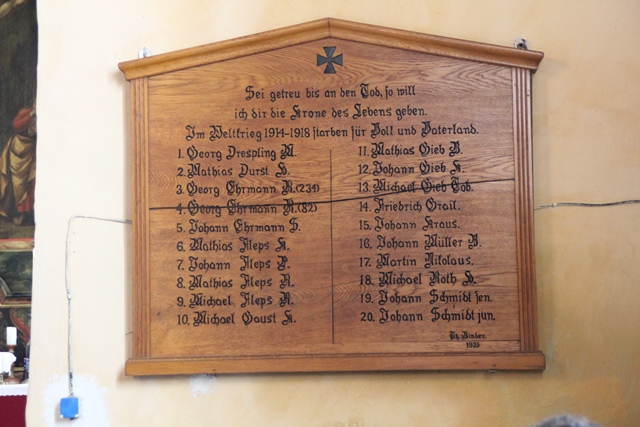 Sei getreu bis an den Tod, so will
ich dir die Krone des Lebens geben.
Im Weltkrieg 1914-1918 starben für Voll und Vaterland.
1. Georg Drespling M.
2. Mathias Durst
3. Georg Ehrmann R.(234)
4. Georg Ehrmann R.(82)
5. Johann Ehrmann S.
6. Mathias
7. Johann
8. Mathias
9. Michael
10. Michael
11. Mathias Gieb
12. Johann Gieb
13. Michael Gieb Tob.
14. Friedrich
15. Johann Kraus.
16. Johann Müller
17. Martin Nikolaus.
18. Michael Roth
19. Johann Schmidt sen.
20. Johann Schmidt jun.
Th. Binder.